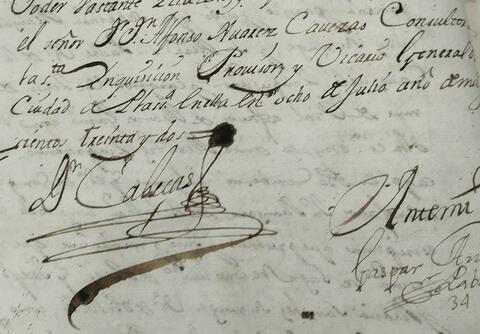 Poder bastante
el señor Dn. Dn. Alfonso Alvarez Cavezas Consultor
la sta. Inquisicion Provisor, y Vicario General
Ciudad de en ella en ocho de Julio año de mil
sientos treinta y dos
Dn. Cabezas
Antemi
Gaspar
34